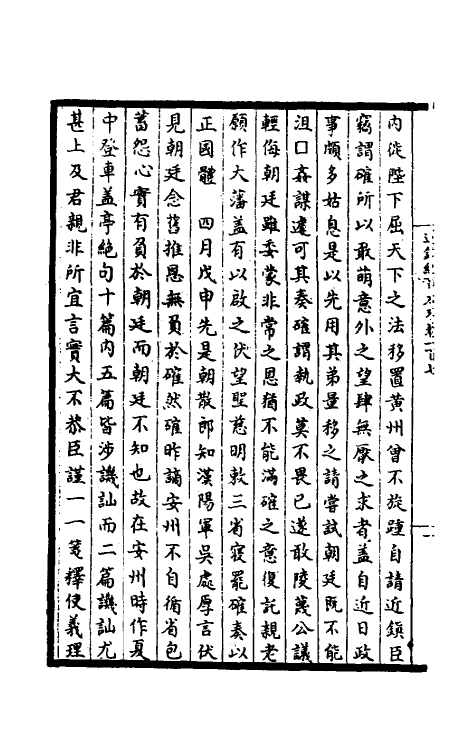 內從陛下屈天下之法移置黃州曾不旋踵自請近鎮臣
竊謂確所以敢萌意外之望肆無厭之求者蓋自近日政
事頗多姑息是以先用其弟量移之請嘗試朝廷既不能
沮口姦謀遽可其奏確謂執政莫不畏已遂敢陵蔑公議
輕侮朝廷雖委蒙非常之恩猶不能滿確之意復託親老
願作大藩蓋有以啟之伏望聖慈明敕三省寢罷確奏以
正國體　四月戊申先是朝散郎知漢陽軍吳處厚言伏
見朝廷念舊推恩無負於確然確昨謫安州不自循省包
蓄怨心實有負於朝廷而朝廷不知也故在安州時作夏
中登車蓋亭絶句十篇內五篇皆涉譏訕而二篇譏訕尤
甚上及君親非所宜言實大不恭臣謹一一箋釋使義理